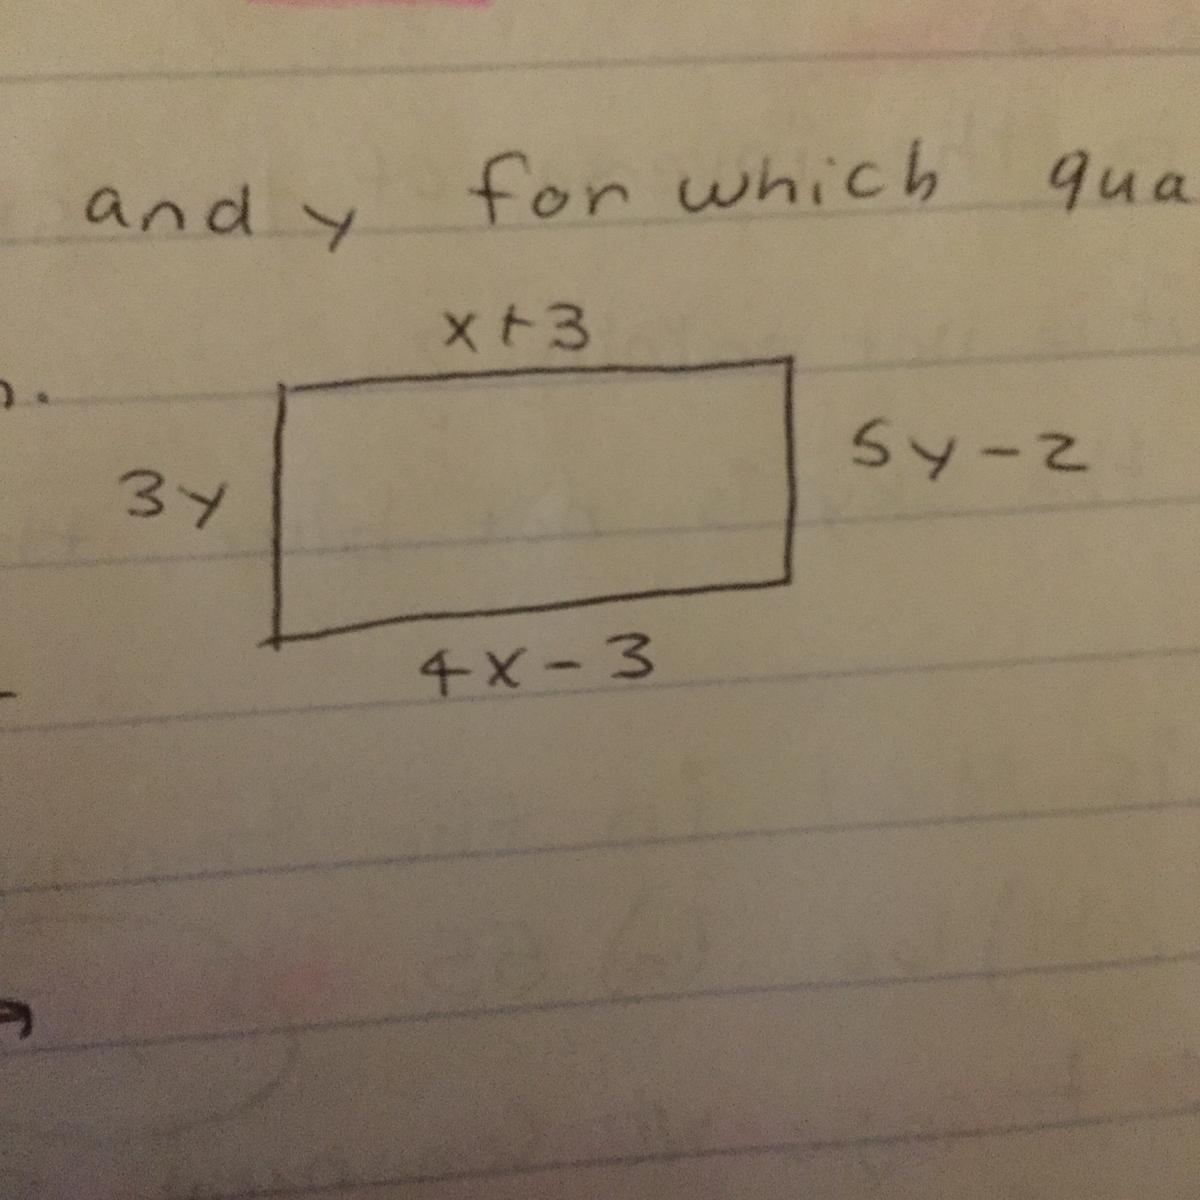 and y for which qua
x+3
3y
5y-2
4x-3